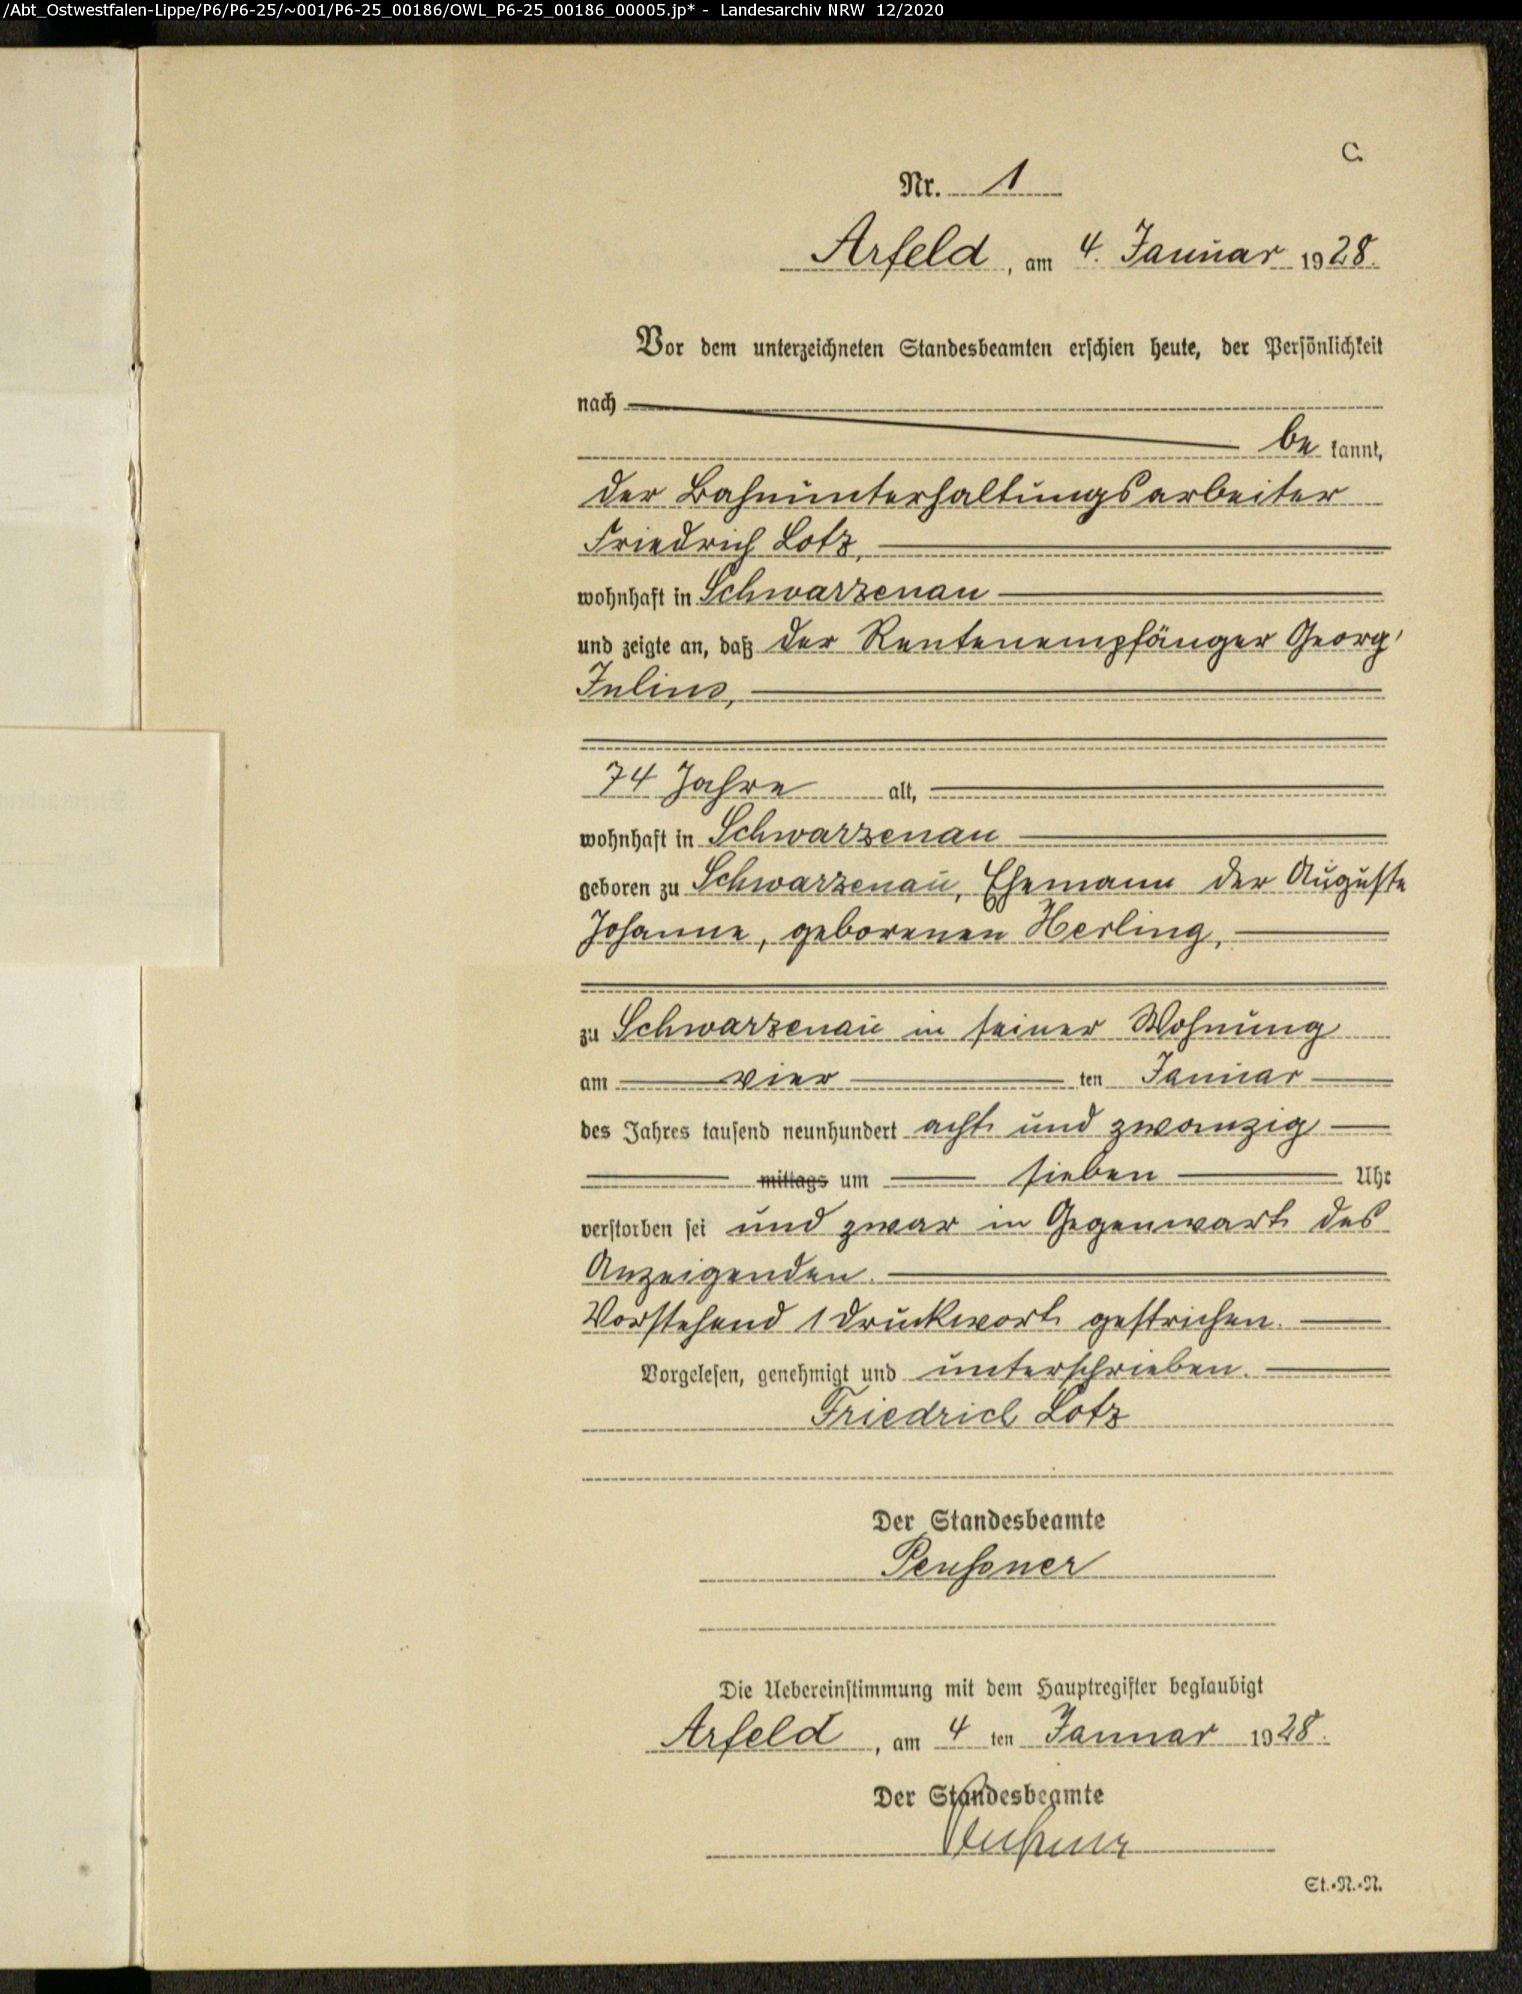 /Abt_Ostwestfalen-Lippe/P6/P6-25/~001/P6-25_00186/OWL_P6-25_00186_00005.jp* - Landesarchiv NRW 12/2020
C.
Nr. 1
Arfeld, am 4. Januar 1928.
Vor dem unterzeichneten Standesbeamten erschien heute, der Persönlichkeit
nach
be kannt,
der Bahnunterhaltungsarbeiter
Friedrich Lotz,
wohnhaft in Schwarzenau
und zeigte an, daß der Rentenempfänger Georg
Julius,
74 Jahre alt,
wohnhaft in Schwarzenau
geboren zu Schwarzenau, Ehemann der Auguste
Johanne, geborenen Herling,
zu Schwarzenau in seiner Wohnung
am vier ten Januar
des Jahres tausend neunhundert acht und zwanzig
mittags um sieben Uhr
verstorben sei und zwar in Gegenwart des
Anzeigenden.
Vorstehend 1 Druckwort gestrichen.
Vorgelesen, genehmigt und unterschrieben.
Friedrich Lotz
Der Standesbeamte
Die Uebereinstimmung mit dem Hauptregister beglaubigt
Arfeld, am 4 ten Januar 1928.
Der Standesbeamte
St.-N.-N.